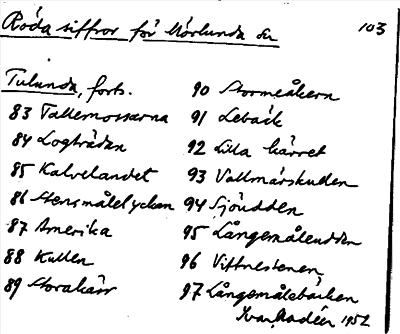 Röda siffror för Mörlunda sn
103
Tulunda, forts.
83 Tallemossarna
84 Logträdan
85 Kalvelandet
86 Stensmålelyckan
87 Amerika
88 Kullen
89 Storakärr
90 Stormeåkern
91 Lebäck
92 Lilla kärret
93 Vallmarskullen
94 Sjöudden
95 Långemåleudden
96 Vittnestenen
97 Långemålebäcken
Ivar Modéer 1952